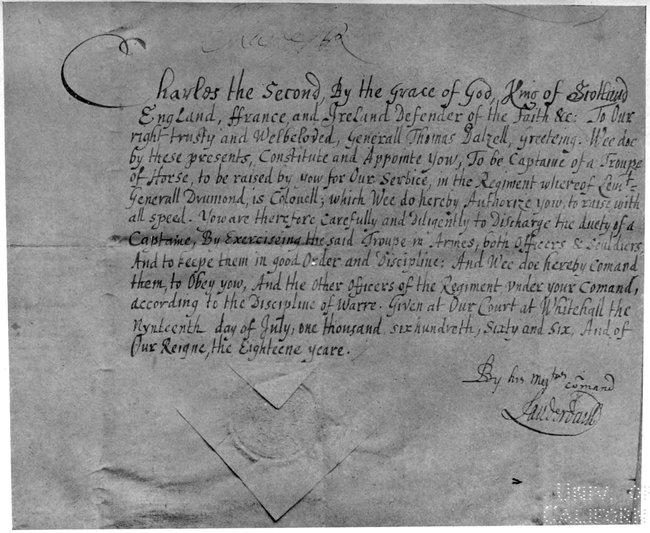 Charles R
Charles the Second, By the Grace of God, King of Scotland
England, ffrance, and Ireland Defender of the Faith &c: To Our
right trusty and Welbeloved, Generall Thomas Dalzell, Greeteing. Wee doe
by these presents, Constitute and Appointe yow, To be Captaine of a Troupe
of Horse, to be raised by yow for Our Service, in the Regiment whereof Leut-
Generall Drumond, is Colonell; which Wee do hereby Authorize yow, to raise with
all speed. You are therefore Carefully and Diligently to Discharge the duety of a
Captaine, By Exerciseing the said Troupe in Armes, both Officers & Souldiers,
And to keepe them in good Order and Discipline: And Wee doe hereby Comand
them, to Obey yow, And the Other Officers of the Regiment vnder your Comand,
according to the Discipline of Warre. Given at Our Court at Whitehall the
Nynteenth day of July, one thousand sixhundreth, Sixty and Six. And of
Our Reigne, the Eighteene yeare.
By his Majties comand
Lauderdaill
UNIV. OF
CALIFORN